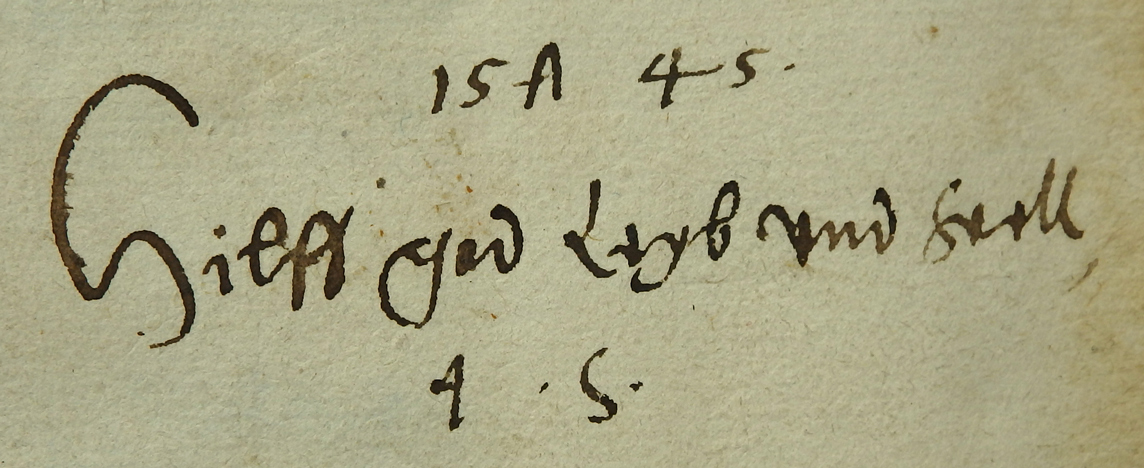 15 A 45.
Hilff god Leyb vnd Seell
A . S.